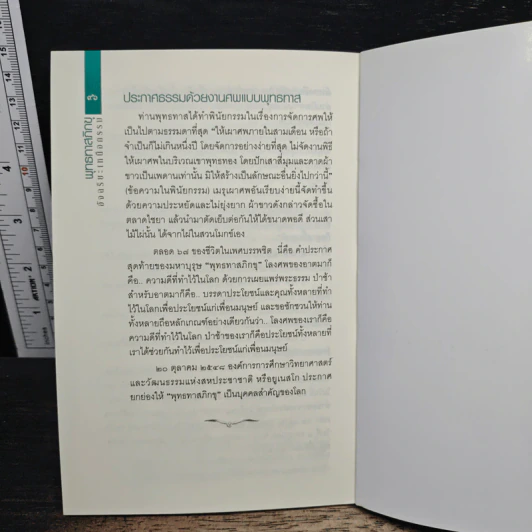 ๖
พุทธทาสภิกขุ
อัจฉริยะเหนือธรรม
ประกาศธรรมด้วยงานศพแบบพุทธทาส
ท่านพุทธทาสได้ทำพินัยกรรมในเรื่องการจัดการศพให้
เป็นไปตามธรรมดาที่สุด "ให้เผาศพภายในสามเดือน หรือถ้า
จำเป็นก็ไม่เกินหนึ่งปี โดยจัดการอย่างง่ายที่สุด ไม่จัดงานพิธี
ให้เผาศพในบริเวณเขาพุทธทอง โดยปักเสาสี่มุมและดาดผ้า
ขาวเป็นเพดานเท่านั้น มิให้สร้างเป็นลักษณะอื่นยิ่งไปกว่านี้"
(ข้อความในพินัยกรรม) เมรุเผาศพอันเรียบง่ายนี้จัดทำขึ้น
ด้วยความประหยัดและไม่ยุ่งยาก ผ้าขาวดังกล่าวจัดซื้อใน
ตลาดไชยา แล้วนำมาตัดเย็บต่อกันให้ได้ขนาดพอดี ส่วนเสา
ไม้ไผ่นั้น ได้จากไผ่ในสวนโมกข์เอง
ตลอด ๖๘ ของชีวิตในเพศบรรพชิต นี่คือ คำประกาศ
สุดท้ายของมหาบุรุษ "พุทธทาสภิกขุ" โลงศพของอาตมาก็
คือ.. ความดีที่ทำไว้ในโลก ด้วยการเผยแพร่พระธรรม ป่าช้า
สำหรับอาตมาก็คือ.. บรรดาประโยชน์และคุณทั้งหลายที่ทำ
ไว้ในโลกเพื่อประโยชน์แก่เพื่อนมนุษย์ และขอชักชวนให้ท่าน
ทั้งหลายถือหลักเกณฑ์อย่างเดียวกันว่า.. โลงศพของเราก็คือ
ความดีที่ทำไว้ในโลก ป่าช้าของเราก็คือประโยชน์ทั้งหลายที่
เราได้ช่วยกันทำไว้เพื่อประโยชน์แก่เพื่อนมนุษย์
๒๐ ตุลาคม ๒๕๔๘ องค์การการศึกษาวิทยาศาสตร์
และวัฒนธรรมแห่งสหประชาชาติ หรือยูเนสโก ประกาศ
ยกย่องให้ "พุทธทาสภิกขุ" เป็นบุคคลสำคัญของโลก